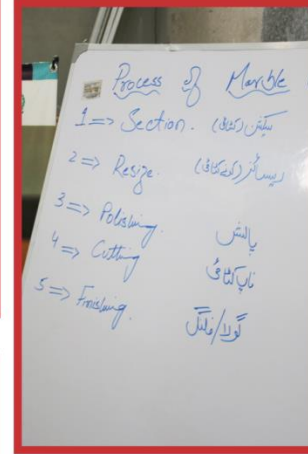 Process of Marble
1 => Section. سیکشن (کٹائی)
2 => Resize. ریسائز (کٹائی)
3 => Polishing. پالش
4 => Cutting ناپ کٹائی
5 => Finishing. گولا/فلیٹ